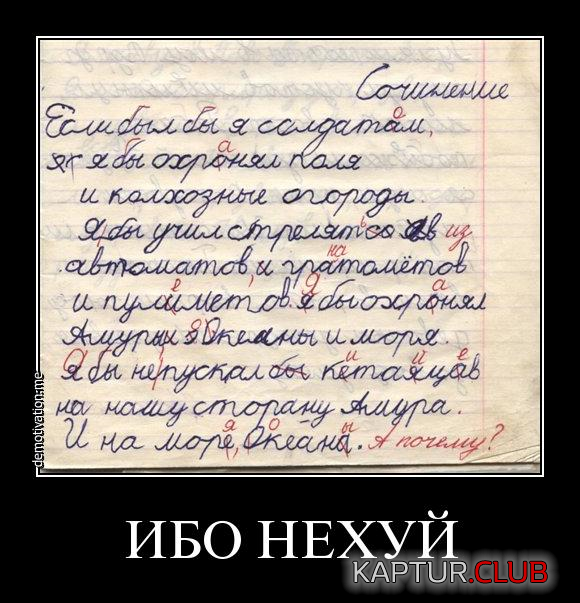 Сочинение
Если был бы я солдатам,
я бы охронял поля
и колхозные огороды.
Я бы учил стрелят со ав из
автоматов, и гратомётов
и пулиметов. я бы охронял
Амуры и Океаны и моря.
Я бы не пускал бы кетаяцав
на нашу сторану Амура.
И на море, Океана. А почему?
demotivation.me
ИБО НЕХУЙ
KAPTUR.CLUB